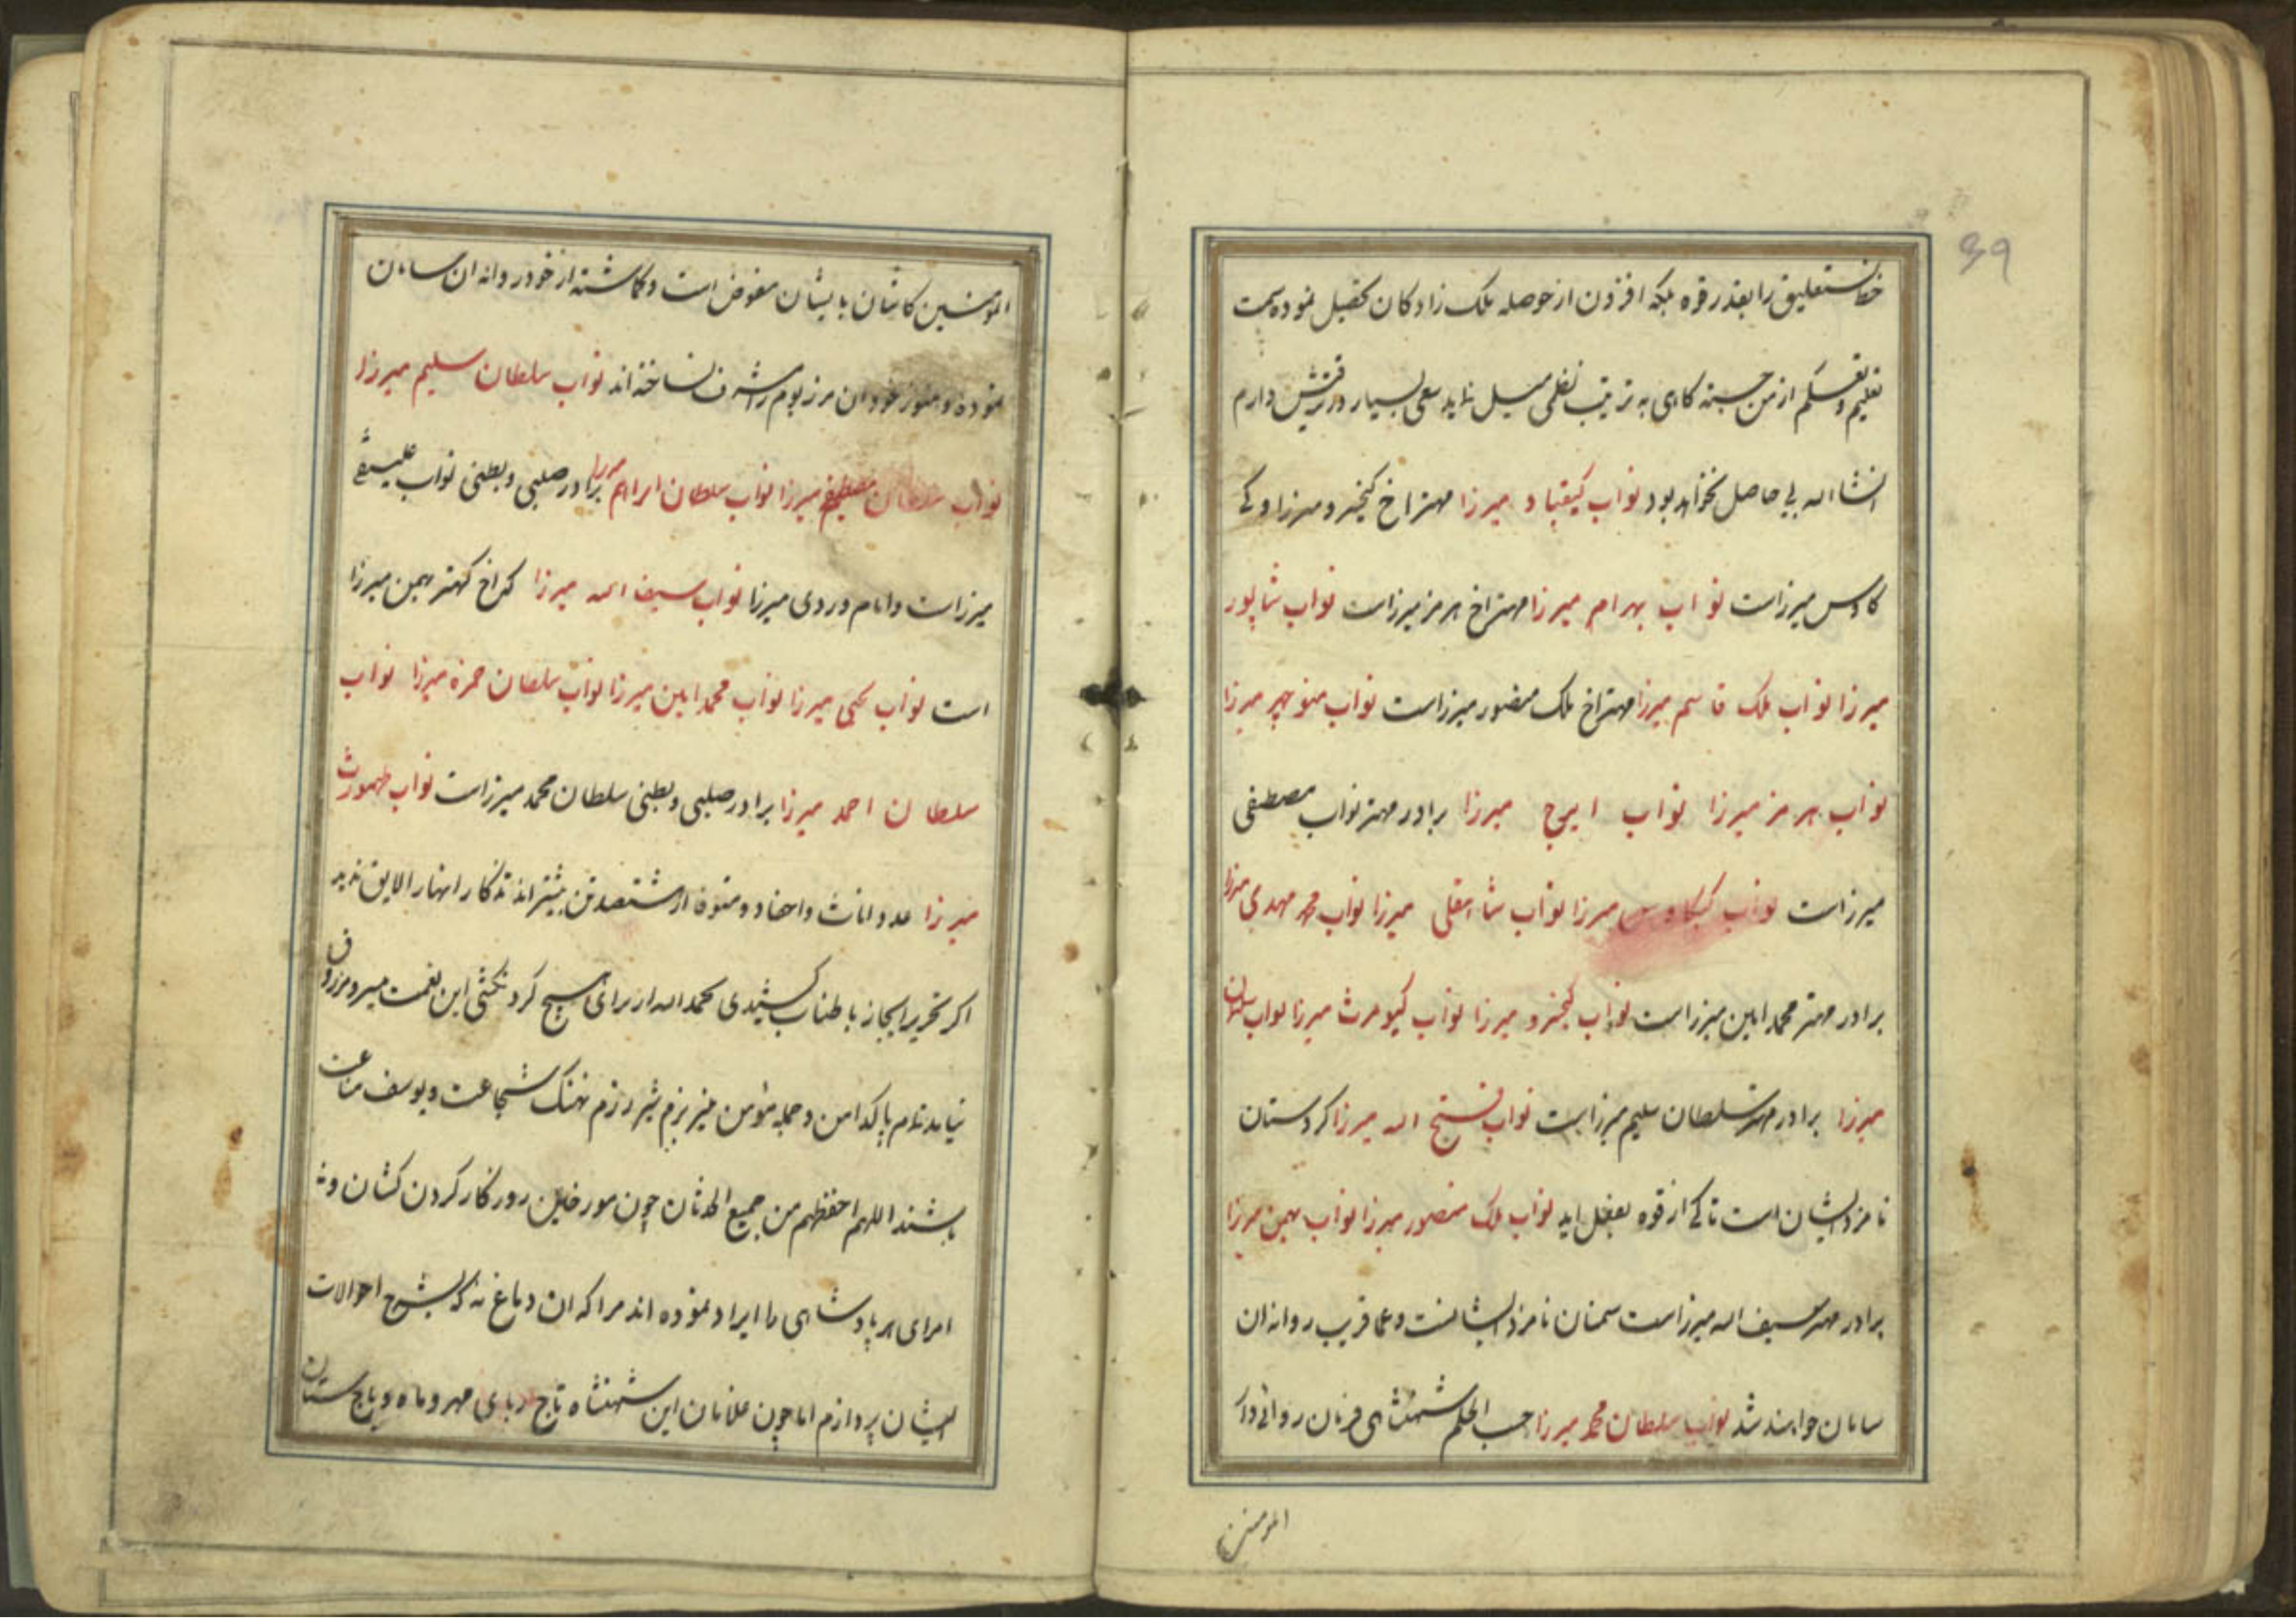 39
خط نستعلیق را بقدر قوه بلکه افزون از حوصله ملک زادکان تحصیل نموده بسمت
تعلیم و تعلم از من جسته کاهی به ترتیب نظمی میل نماید سعی بسیار در ترقیش دارم
انشاالله بی حاصل نخواهد بود نواب کیقباد میرزا مهتر اخ کیخسرو میرزا و کی
کاوس میرزاست نواب بهرام میرزا مهتر اخ هرمز میرزاست نواب شاپور
میرزا نواب ملک قاسم میرزا مهتر اخ ملک منصور میرزاست نواب منوچهر میرزا
نواب هرمز میرزا نواب ایرج میرزا برادر مهتر نواب مصطفی
میرزاست نواب کیکاوس میرزا نواب شاهقلی میرزا نواب محمد مهدی میرزا
برادر مهتر محمد امین میرزاست نواب کیخسرو میرزا نواب کیومرث میرزا نواب سلیمان
میرزا برادر مهتر سلطان سلیم میرزاست نواب فتح الله میرزا کردستان
نامزد ایشان است تا کی از قوه بفعل اید نواب ملک منصور میرزا نواب بهمن میرزا
برادر مهتر سیف الله میرزاست سمنان نامزد ایشانست و عما قریب روانه ان
سامان خواهند شد نواب سلطان محمد میرزا حسب الحکم شهنشاهی فرمان روائی دار
المومنین
المومنین کاشان بایشان مفوض است و کماشته از خود روانه ان سامان
نموده و هنوز خود ان مرز بوم را مشرف نساخته اند نواب سلطان سلیم میرزا
نواب سلطان مصطفی میرزا نواب سلطان ابراهیم میرزا برادر صلبی و بطنی نواب علینقی
میرزاست و امام وردی میرزا نواب سیف الله میرزا که اخ کهتر بهمن میرزا
است نواب یحیی میرزا نواب محمد امین میرزا نواب سلطان حمزه میرزا نواب
سلطان احمد میرزا برادر صلبی و بطنی سلطان محمد میرزاست نواب طهمورث
میرزا عدد اناث و احفاد و از ششصد تن بیشتر اند تذکار انها را لایق ندید
اکر تحریر ایجاز باطناب کشیدی بحمد الله از برای هیچ کرد نکشی این نعمت میسر و مرزوق
نیامد تمام پاکدامن و جمله مؤمن بزم شیر رزم نهنک شجاعت و یوسف مناعت
باشند اللهم احفظهم من جمیع الحدثان چون مورخین روزکار کردن کشان و
امرای هر پادشاهی را ایراد نموده اند مرا که ان دماغ نه که بشرح احوالات
ایشان پردازم اما چون غلامان این شهنشاه تاج ربای مهر و ماه و باج ستان